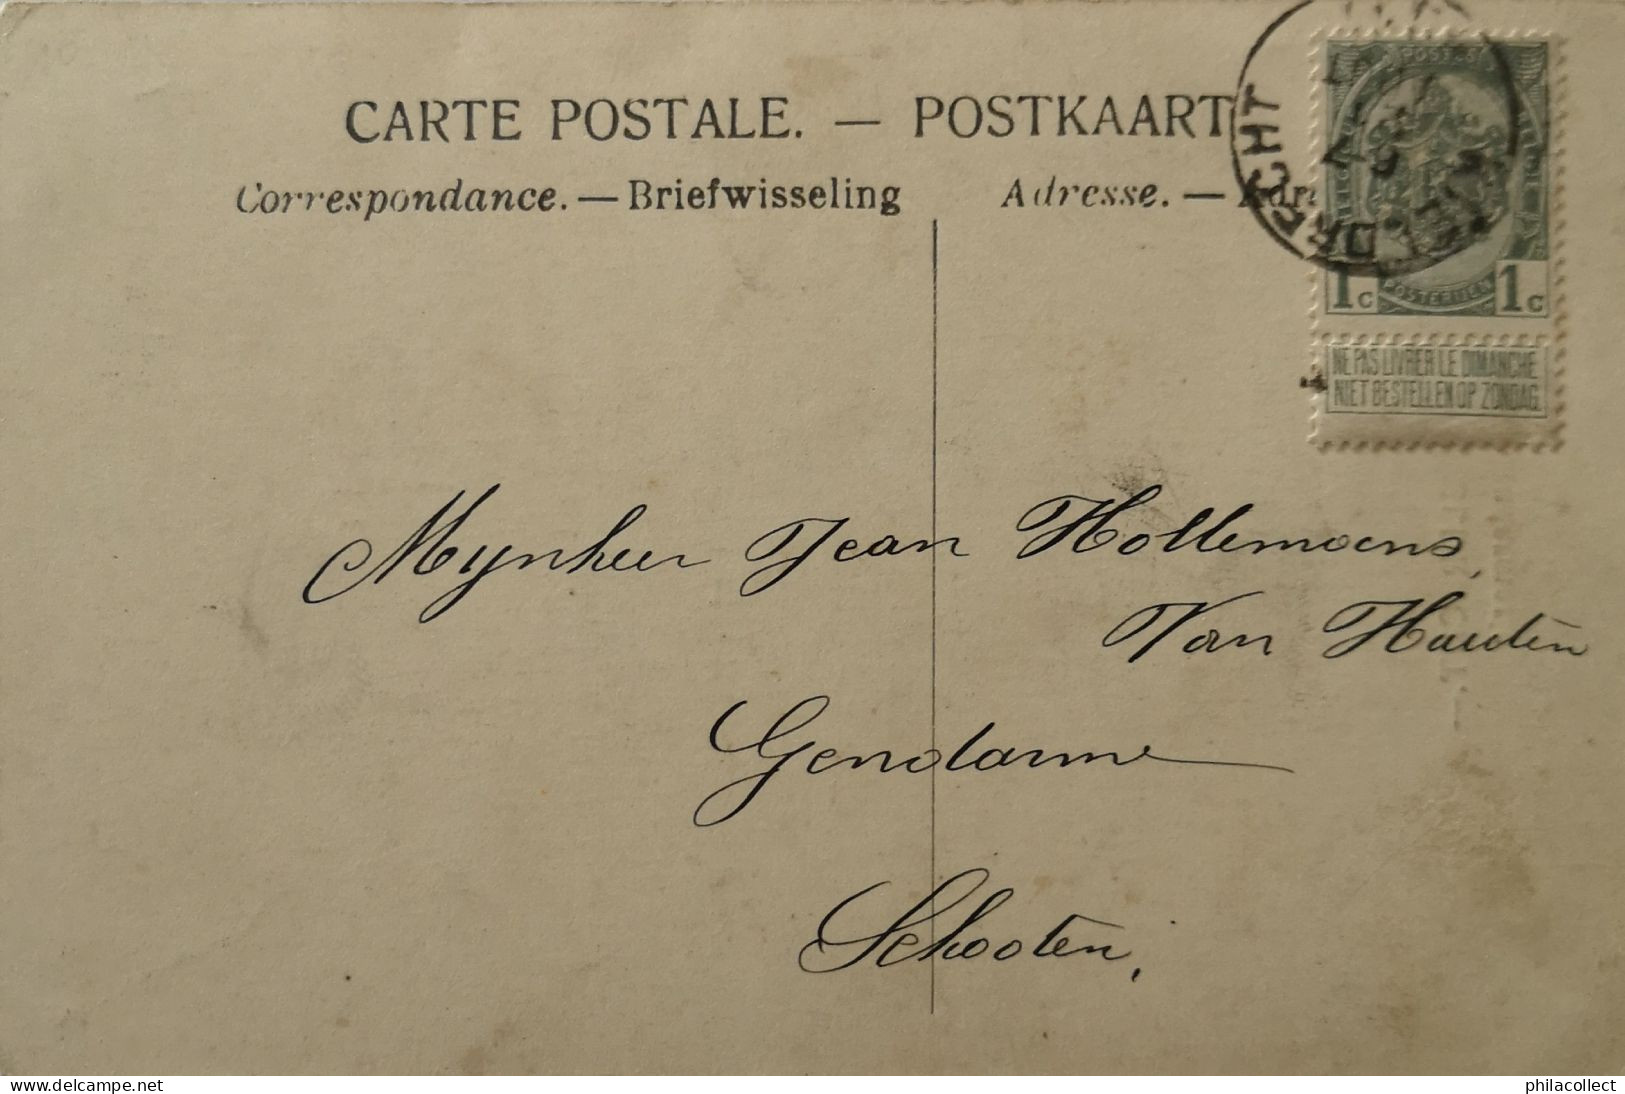 CARTE POSTALE. — POSTKAART
Correspondance. — Briefwisseling
Adresse. — Adr
DRECHT
1c 1c
POSTERIJEN
NE PAS LIVRER LE DIMANCHE
NIET BESTELLEN OP ZONDAG
Mynheer Jean Hollemaens,
Van Hauten
Gendarme
Schooten,
www.delcampe.net
philacollect